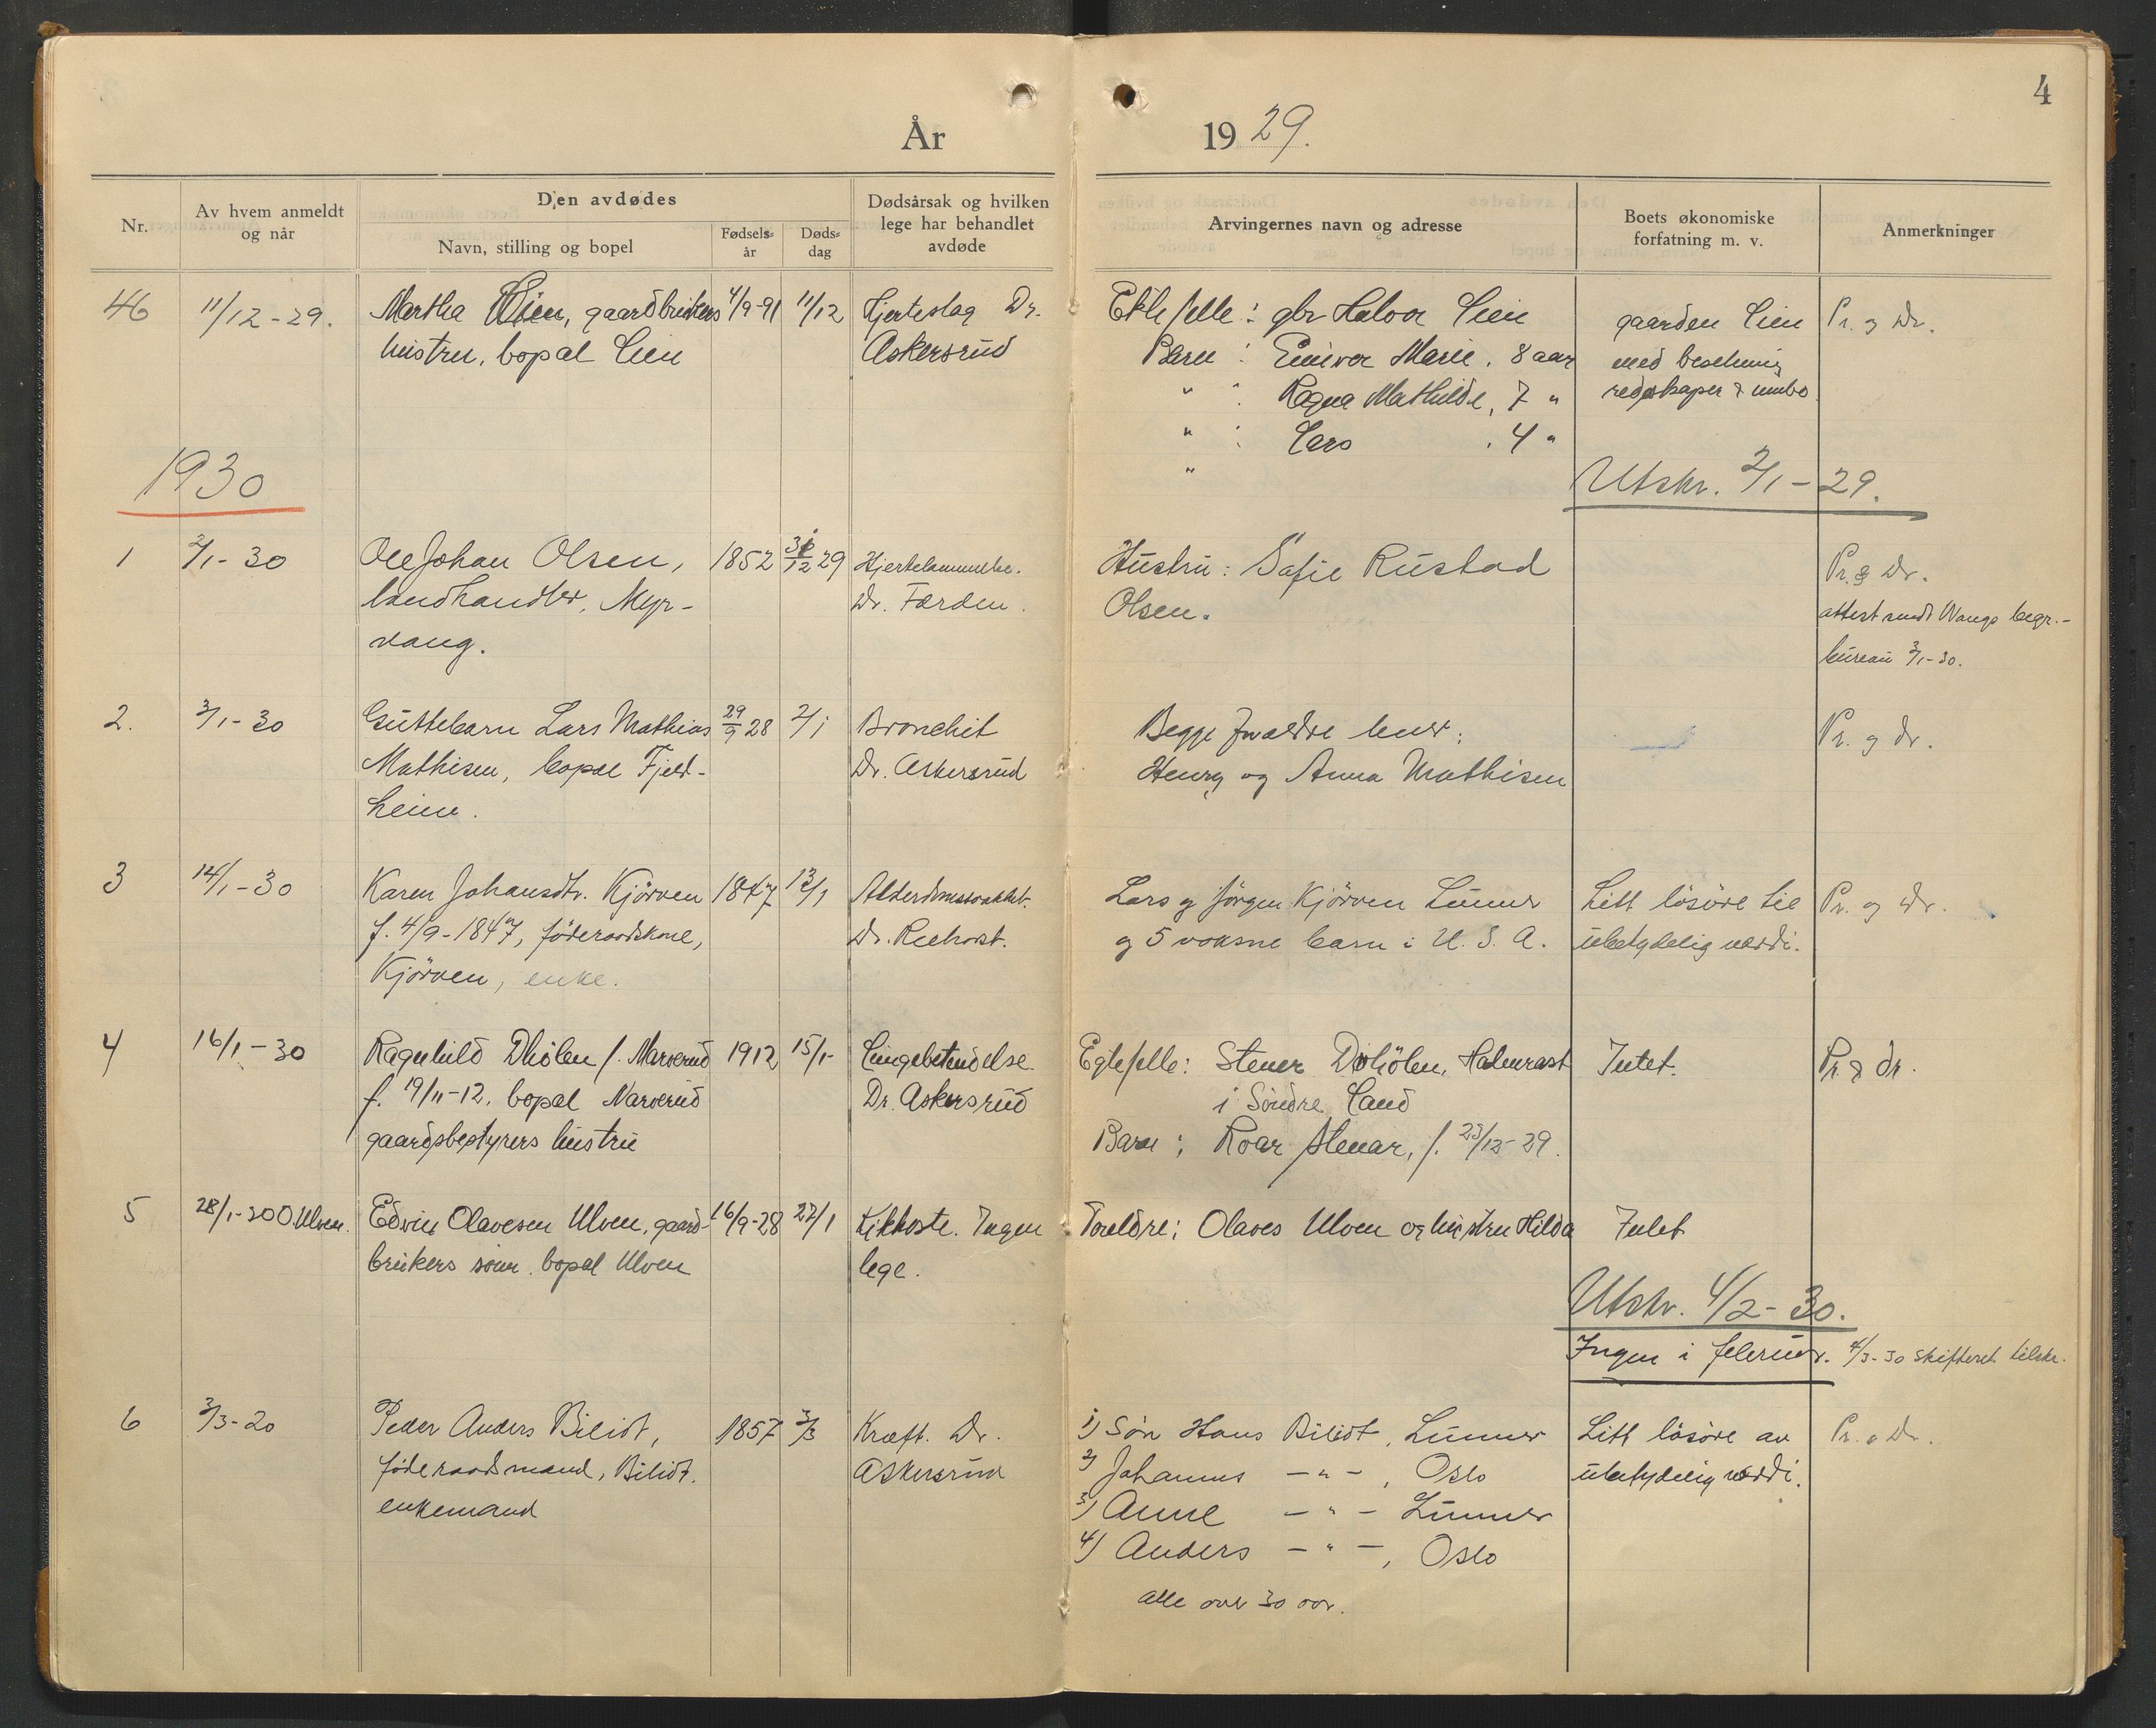 4
År 1929.
Nr.
Av hvem anmeldt og når
Den avdødes
Navn, stilling og bopel
Fødsels-år
Døds-dag
Dødsårsak og hvilken lege har behandlet avdøde
Arvingernes navn og adresse
Boets økonomiske forfatning m. v.
Anmerkninger
46 11/12-29. Martha Lien, gaardbrukers 4/9-91 11/12 Hjerteslag Dr. Ektefelle: gbr Halvor Lien gaarden Lien Pr. og Dr.
hustru, bopæl Lien Askersrud Barn : Marie. 8 aar med besetning
" : Ragna Mathilde, 7 " redskaper & innbo
" : Lars . 4 "
"
1930 Utskr. 2/1-29.
1 2/1-30 Ole Johan Olsen, 1852 12 29 Hjertelammelse. Hustru: Sofie Rustad Pr. & Dr.
landhandler, Myr- Dr. Færden. Olsen. attest sendt Wangs begr.-
vang. bureau 3/1-30.
2. 3/1-30 Guttebarn Lars Mathias 29/9 28 2/1 Bronchit Begge forældre lever: Pr. og dr.
Mathisen, bopæl Fjeld- Dr. Askersrud Henry og Anna Mathisen
heim.
3 14/1-30 Karen Johansdtr. Kjörven 1847 13/1 Alderdomssvakhet. Lars og Jörgen Kjörven Lunner Litt lösöre til Pr. og Dr.
f. 4/9-1847, föderaadskone, Dr. og 5 voksne barn i U. S. A. ubetydelig værdi.
Kjörven, enke.
4 16/1-30 Ragnhild Dhölen f. Narverud 1912 15/1- Lungebetendelse. Egtefelle: Stener Döhölen, Halmrast Intet. Pr. & dr.
f. 19/11-12, bopæl Narverud Dr. Askersrud i Söndre Land
gaardsbestyrers hustru Barn: Roar Stenar, f. 23/12-29.
5 28/1-30 O.Ulven. Edvin Olavesen Ulven, gaard- 16/9-28 22/1 Kikhoste. Ingen Foreldre: Olaves Ulven og hustru Hilda Intet
brukers sönn. bopæl Ulven lege.
Utskr. 4/2-30.
Ingen i februar. 4/3-30 Skifteret tilskr.
6 3/3-20 Peder Anders Bilidt, 1857 3/3 Kræft. Dr. 1) Sön Hans Bilidt, Lunner Litt lösöre av Pr. & Dr.
föderaadsmand, Bilidt. Askersrud 2) Johannes -"-, Oslo ubetydelig værdi.
enkemand 3) Anne -"- Lunner
4) Anders -"-, Oslo
alle over 30 aar.